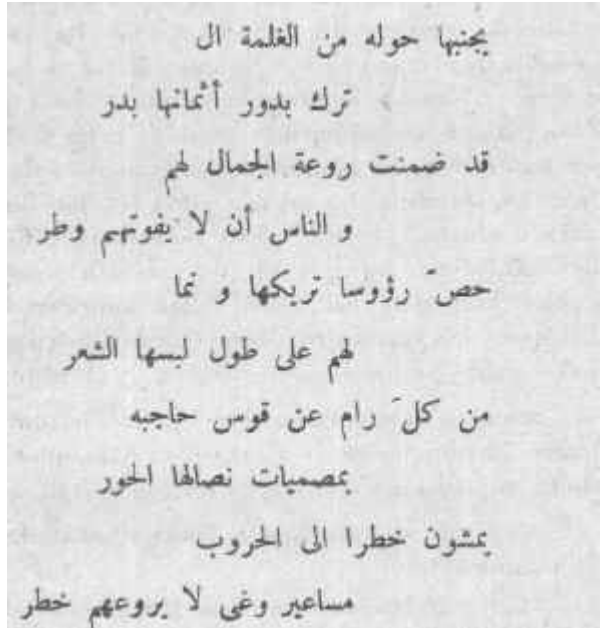 يجنبها حوله من الغلمة ال
ترك بدور أثمانها بدر
قد ضمنت روعة الجمال لهم
و الناس أن لا يفوتهم وطر
حصّ رؤوسا تريكها و نما
لهم على طول لبسها الشعر
من كلَ رام عن قوس حاجبه
بمصميات نصالها الحور
يمشون خطرا الى الحروب
مساعير وغى لا يروعهم خطر